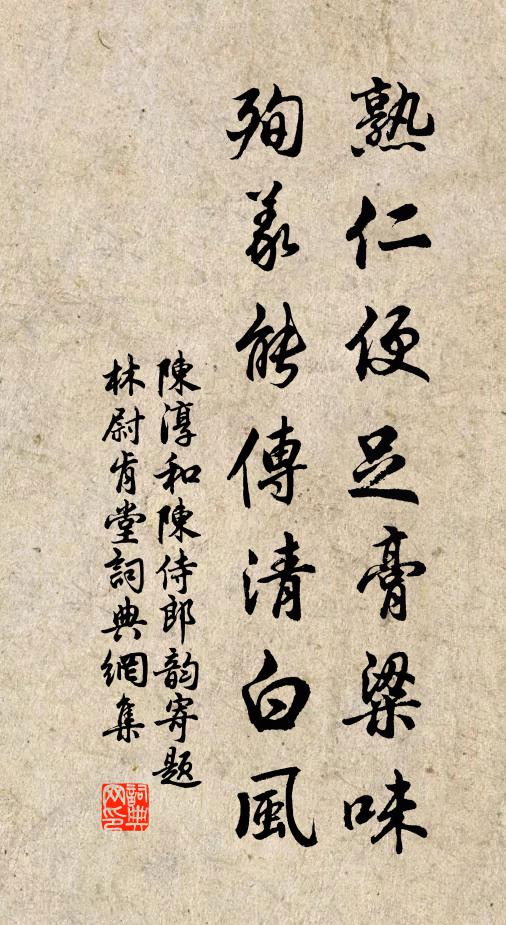 熟仁便足膏粱味
殉義能傳清白風
陳淳和陳侍郎韵寄題
林尉肯堂詞典網集
詞典網印